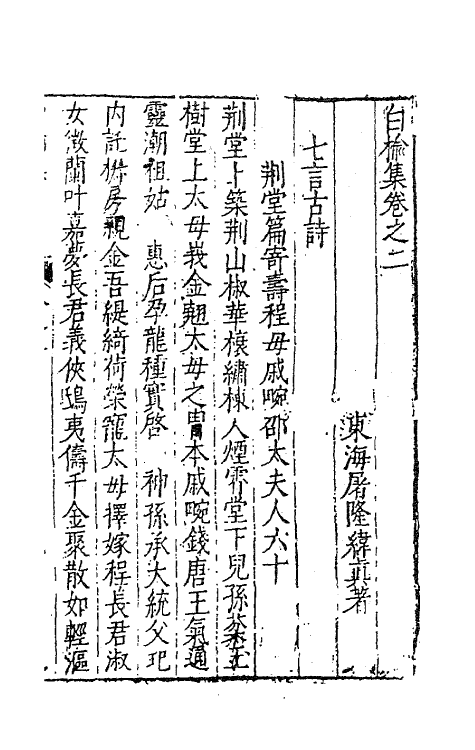 白榆集卷之二
東海屠隆緯真著
七言古詩
荆堂篇寄壽程母戚畹邵太夫人六十
荆堂卜築荆山椒華榱繡棟人煙霄堂下兒孫蔡玉
樹堂上太母峩金翹太母之胄本戚畹錢唐王氣通
靈潮祖姑 惠后孕龍種實啓 神孫承大統父玘
内託椒房親金吾緹綺荷榮寵太母擇嫁程長君淑
女徵蘭叶嘉夢長君義俠鴟夷儔千金聚散如輕漚